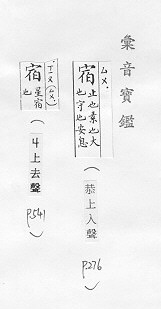 彙音寶鑑
ㄙㄨ˙
宿
止也素也大
也守也安息
也
(恭上入聲)
P.276
ㄒㄧㄡ(ㄙㄨ)
宿
星宿
也
(ㄐ上去聲)
P.541